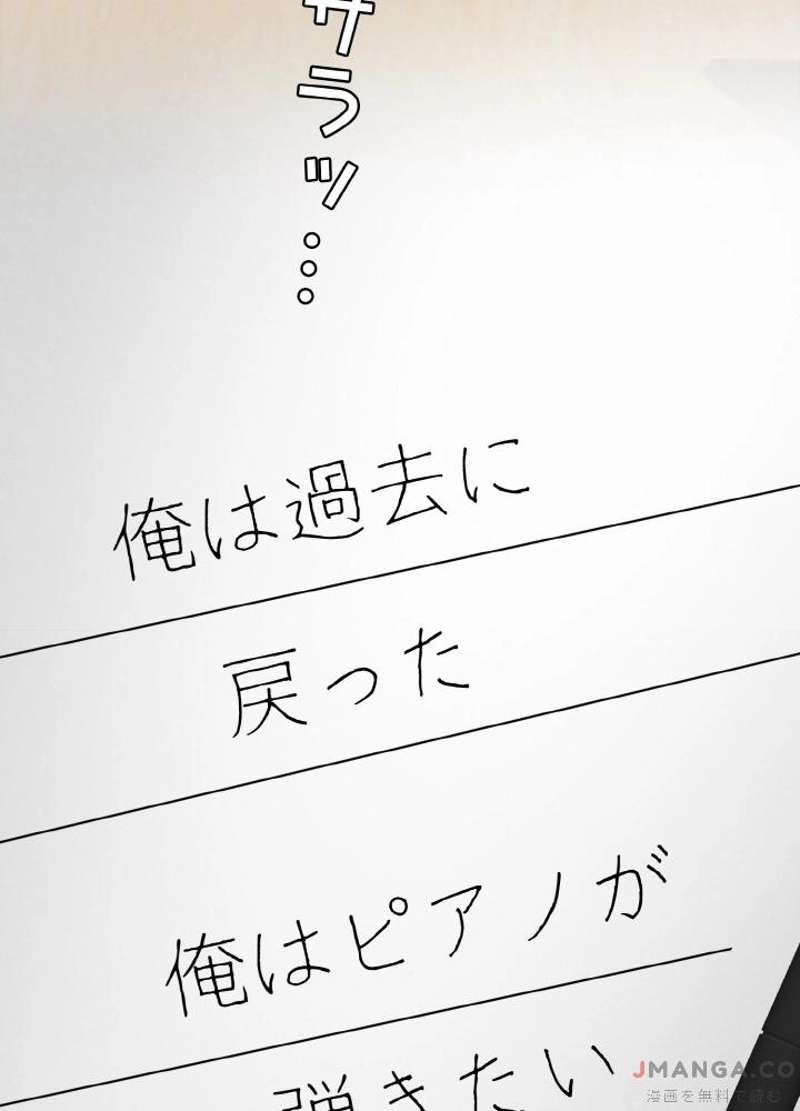 サラッ…
俺は過去に
戻った
俺はピアノが
弾きたい
JMANGA.CO
漫画を無料で読む